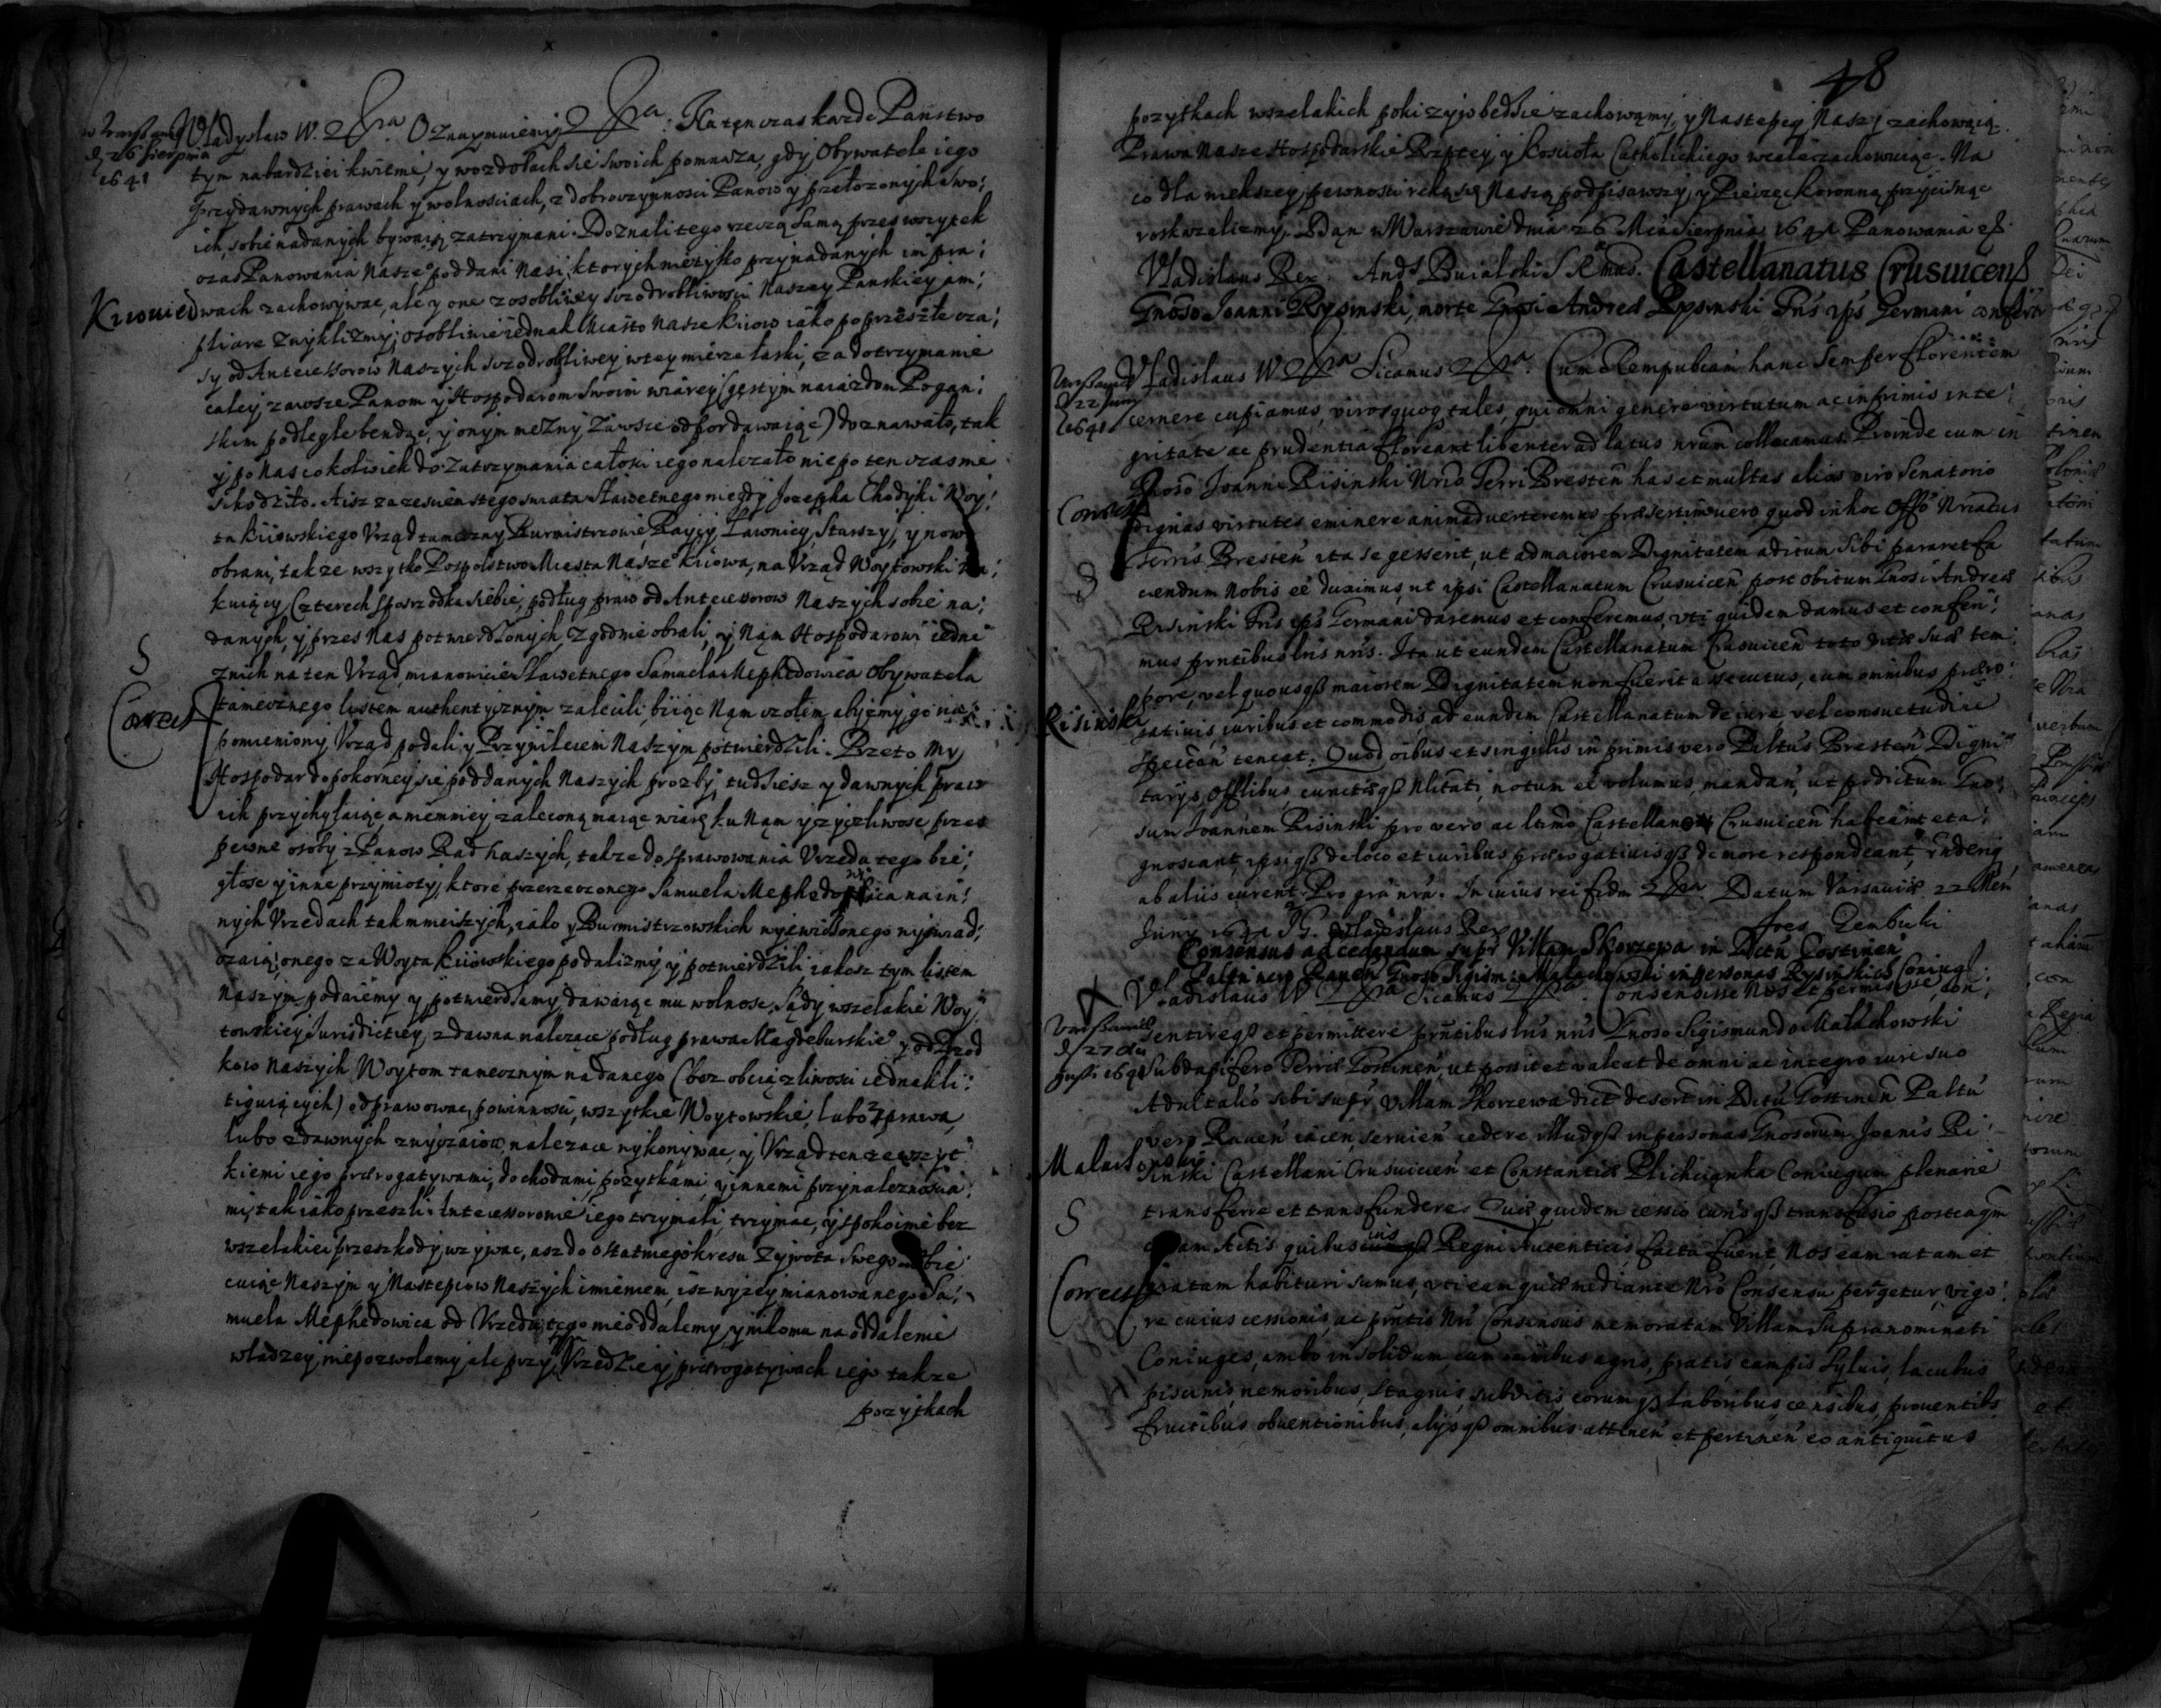 w Warszawie
d. 26 Sierpnia
1641
Władysław W. &c. Oznaymuiemy &c. Na ten czas każde Państwo
tym nabardziei kwitnie, y wozdobach sie swoich pomnaza, gdy Obywatela iego
przy dawnych prawach y wolnosciach, z dobroczynnosci Panow y przełozonych swo:
ich, sobie nadanych bywaią zatrzymani. Doznali tego rzeczą samą przes wszytek
czas Panowania Nasze° poddani Nasi, ktorych nie tylko przy nadanych im pra:
Kiiowie
wach zachowywac, ale y one z osobliwey szczodrobliwosci Naszey Panskiey am:
pliare zwyklismy, osobliwie iednak Miasto Nasze Kiiow iako po przeszłe cza:
sy od Antecessorow Naszych szczodrobliwey w tey mierze łaski, za dotrzymanie
całey zawsze Panom y Hospodarom Swoim wiarey (gęstym naiazdom Pogan:
skim podległe bendąc, y onym mężny zawsze odpor dawaiąc) doznawało, tak
y po Nas cokolwiek do zatrzymania całosci iego nalezało nie po ten czas nie
schodziło. A isz za zesciem s tego swiata Sławetnego niegdy Jozepha Chodyki Woy:
ta Kiiowskiego Vrząd tameczny, Burmistrzowie, Raycy, Ławnicy, Starszy, y nowo
obrani, takze wszytko Pospolstwo Miasta Nasze° Kiiowa, na Vrząd Woytowski
kuiący Czterech sposrzodka siebie, podług praw od Antecessorow Naszych sobie na:
danych, y przes Nas potwierdzonych, zgodnie obrali, y Nam Hospodarowi iedne°
znich na ten Vrząd mianowicie Sławetnego Samuela Mephedowica Obywatela
S
Corect
tamecznego lystem authentycznym zalecili, biiąc Nam czołem abysmy go na
pomieniony Vrząd podali y Przywileiem Naszym potwierdzili. Przeto My
Hospodar do pokorney sie poddanych Naszych prozby, tudziesz y dawnych praw
ich przychylaiąc, a niemniey zaleconą maiąc wiarę ku Nam y zyczliwosc przes
pewne osoby z Panow Rad Naszych, takze do sprawowania Vrzędu tego bie:
głosc y inne przymioty, ktore przerzeczonego Samuela Mephedowica na in:
nych Vrzedach tak mnieiszych, iako y Burmistrzowskich
186
1349
czaią, onego za Woyta Kiiowskiego podalismy y potwierdzili iakosz tym listem
Naszym podaiemy y potwierdzamy, dawaiąc mu wolnosc, Sądy wszelakie Woy:
towskiey Jurisdictiey, zdawna nalezące podług prawa Magdeburskie° y od Przod
kow Naszych Woytom tamecznym nadanego (bez obciązliwosci iednak li:
tiguiących) odprawowac, powinnosci, wszytkie Woytowskie, lubo z prawa,
lubo z dawnych zwyczaiow nalezące wykonywac, y Vrząd ten ze wszyt:
kiemi iego prærogatywami, dochodami, pozytkami, y innemi przynaleznoscia:
mi, tak iako przeszli Antecessorowie iego trzymali, trzymac, y spokoinie bez
wszelakiei przeszkody uzywac, asz do ostatniego kresu zywota swego obie
cuiąc Naszym y Nastepcow Naszych imieniem, isz wyzey mianowanego Sa:
muela Mephedowica od Vrzędu tego nie oddalemy, y nikomu na oddalenie
władzey, niepozwolemy, ale przy tym Vrzedzie y prærogatywach iego takze
pozytkach
48
pozytkach wszelakich poki zyio bedzie zachowamy, y Nastepcy Naszy zachowaią.
Prawa Nasze Hospodarskie Rzptey, y Koscioła Catholickiego wcale zachowuiąc. Na
co dla wiekszey pewnosci reką się Naszą podpisawszy, y Pieczęc koronną przycisnąc
roskazalismy. Dan w Warszawie dnia 26 Mca Sierpnia 1641 Panowania &c.
Vladislaus Rex. And. Buialski S. R. Mtis. Castellanatus Crusuicens
Gnoso Joanni Rysinski, morte Gnosi Andreæ Rysinski Fris ipsi° Germani confertur
Varsaviæ
d. 22 Juny
1641
Vladislaus IV &c. Sicanus &c. Cum Rempubcam hanc semper florentem
cernere cupiamus, viros quoq tales, qui omni genere virtutum ac inprimis inte:
gritate ac prudentia floreant libenter ad latus nrum collocamus. Proinde cum in
Gnoso Joanne Risinski Nrio Terri Bresten has et multas alias viro Senatorio
Corect
dignas virtutes eminere animadverteremus præsertim vero quod in hoc Offo Nriatus
Terris Bresten ita se gesserit, ut ad maiorem Dignitatem aditum sibi pararet fa
ciendum Nobis eē duximus, ut ipsi Castellanatum Crusuicen post obitum Gnosi Andreæ
Risinski Fris ipsi° Germani daremus et conferemus, vti quidem damus et conferi:
mus prntibus lris nris. Ita ut eundem Castellanatum Crusuicen toto vitæ suæ tem
pore, vel quousqs maiorem Dignitatem non fuerit assecutus, cum omnibus præro:
Risinski
gativis, iuribus et commodis ad eundem Castellanatum de iure vel consuetudine
spectan teneat. Quod oibus et singulis in primis vero Paltus Bresten Digni:
tarys, Offlibus, cunctæqs Nlitati, notum eē volumus, mandan, ut prædictum Gno:
sum Joannem Risinski pro vero ac ltimo Castellano Crusuicen habeant et a:
gnoscant, ipsiqs de loco et iuribus prærogativisqs de more respondeant,
ab aliis curent. Pro gra nra. In cuius rei fidem &c. Datum Varsaviæ 22 Men
Juny 1641. Vladislaus Rex Joes Gembicki
Consensus ad cedendum supr Villam Skorzewa in Dictu Gostinen
Paltu vero Raven Gnoso Sigism. Małachowski in personas Rysinskich Coniug
Varsaviæ
d. 27
1641
Vladislaus IV &c. Sicanus &c. Consensisse Nos et permisisse con:
sentireqs et permittere prntibus lris nris Gnoso Sigismundo Małachowski
Subdapifero Terræ Gostinen, ut possit et valeat de omni ac integro iure suo
Advitalio sibi supr Villam Skorzewa dict desert in Dictu Gostinen Paltu
vero Raven iacen servien cedere illudqs in personas Gnosorum Joanis Ri:
Malachowski
sinski Castellani Crusuicen et Constantiæ Plichcianka Coniugum plenarie
S
transferre et transfundere. Quæ quidem cessio iurisqs transfusio postea qm
coram Actis quibusvis Regni Autenticis facta fuerit, Nos eam ratam et
Corect
gratam habituri sumus, vti eam quæ mediante Nro Consensu pergetur, vigo:
re cuius cessionis, ac prntis Nri Consensus memoratam Villam supranominati
Coniuges, ambo in solidum cum omnibus agris, pratis, campis, sylvis, lacubus
piscinis, nemoribus, stagnis, subditis eorumqs Laboribus, censibus, proventibs
fructibus obventionibus, alysqs omnibus attinen et pertinen eo antiquitus